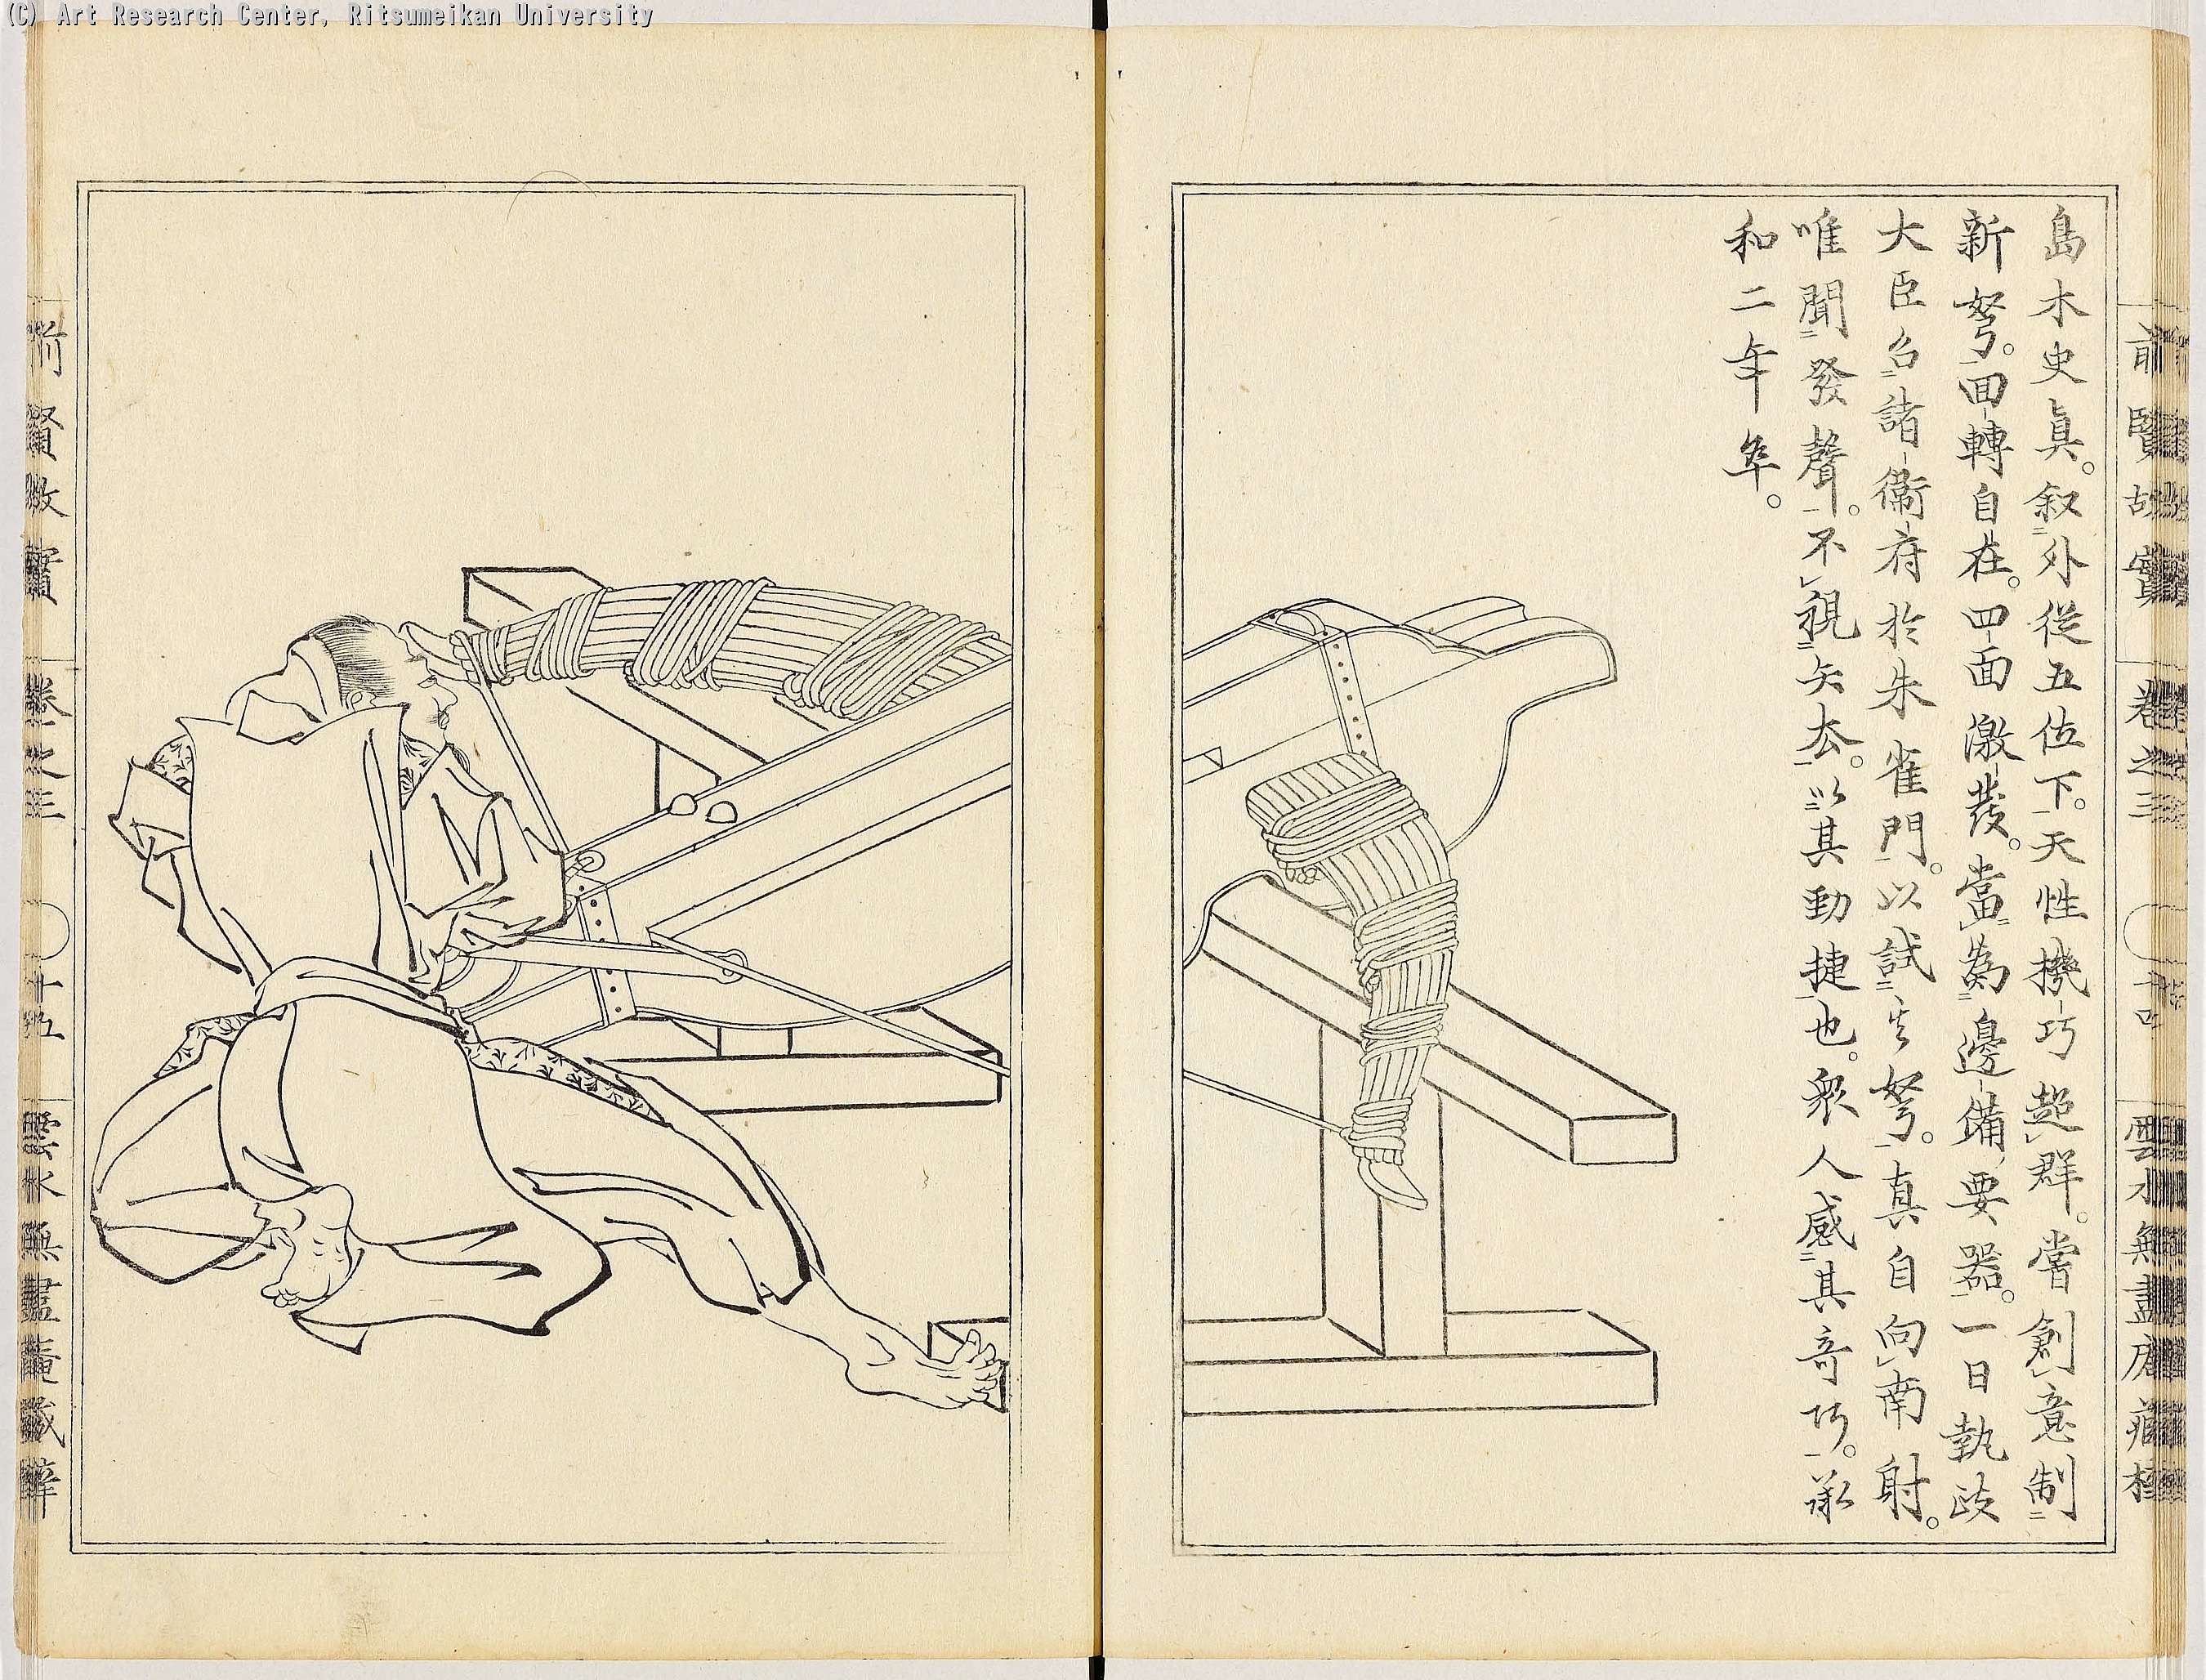 (C) Art Research Center, Ritsumeikan University
前賢故實 卷之三 雲水無盡庵藏梓
島木史眞。叙外從五位下。天性機巧超群。嘗創意制
新弩。回轉自在。四面激發。當爲邊備要器。一日執政
大臣召諸衞府於朱雀門。以試其弩。真自向南射。
唯聞發聲。不視矢去。以其勁捷也。衆人感其奇巧。承
和二年卒。
前賢故實 卷之三 十五 雲水無盡庵藏梓